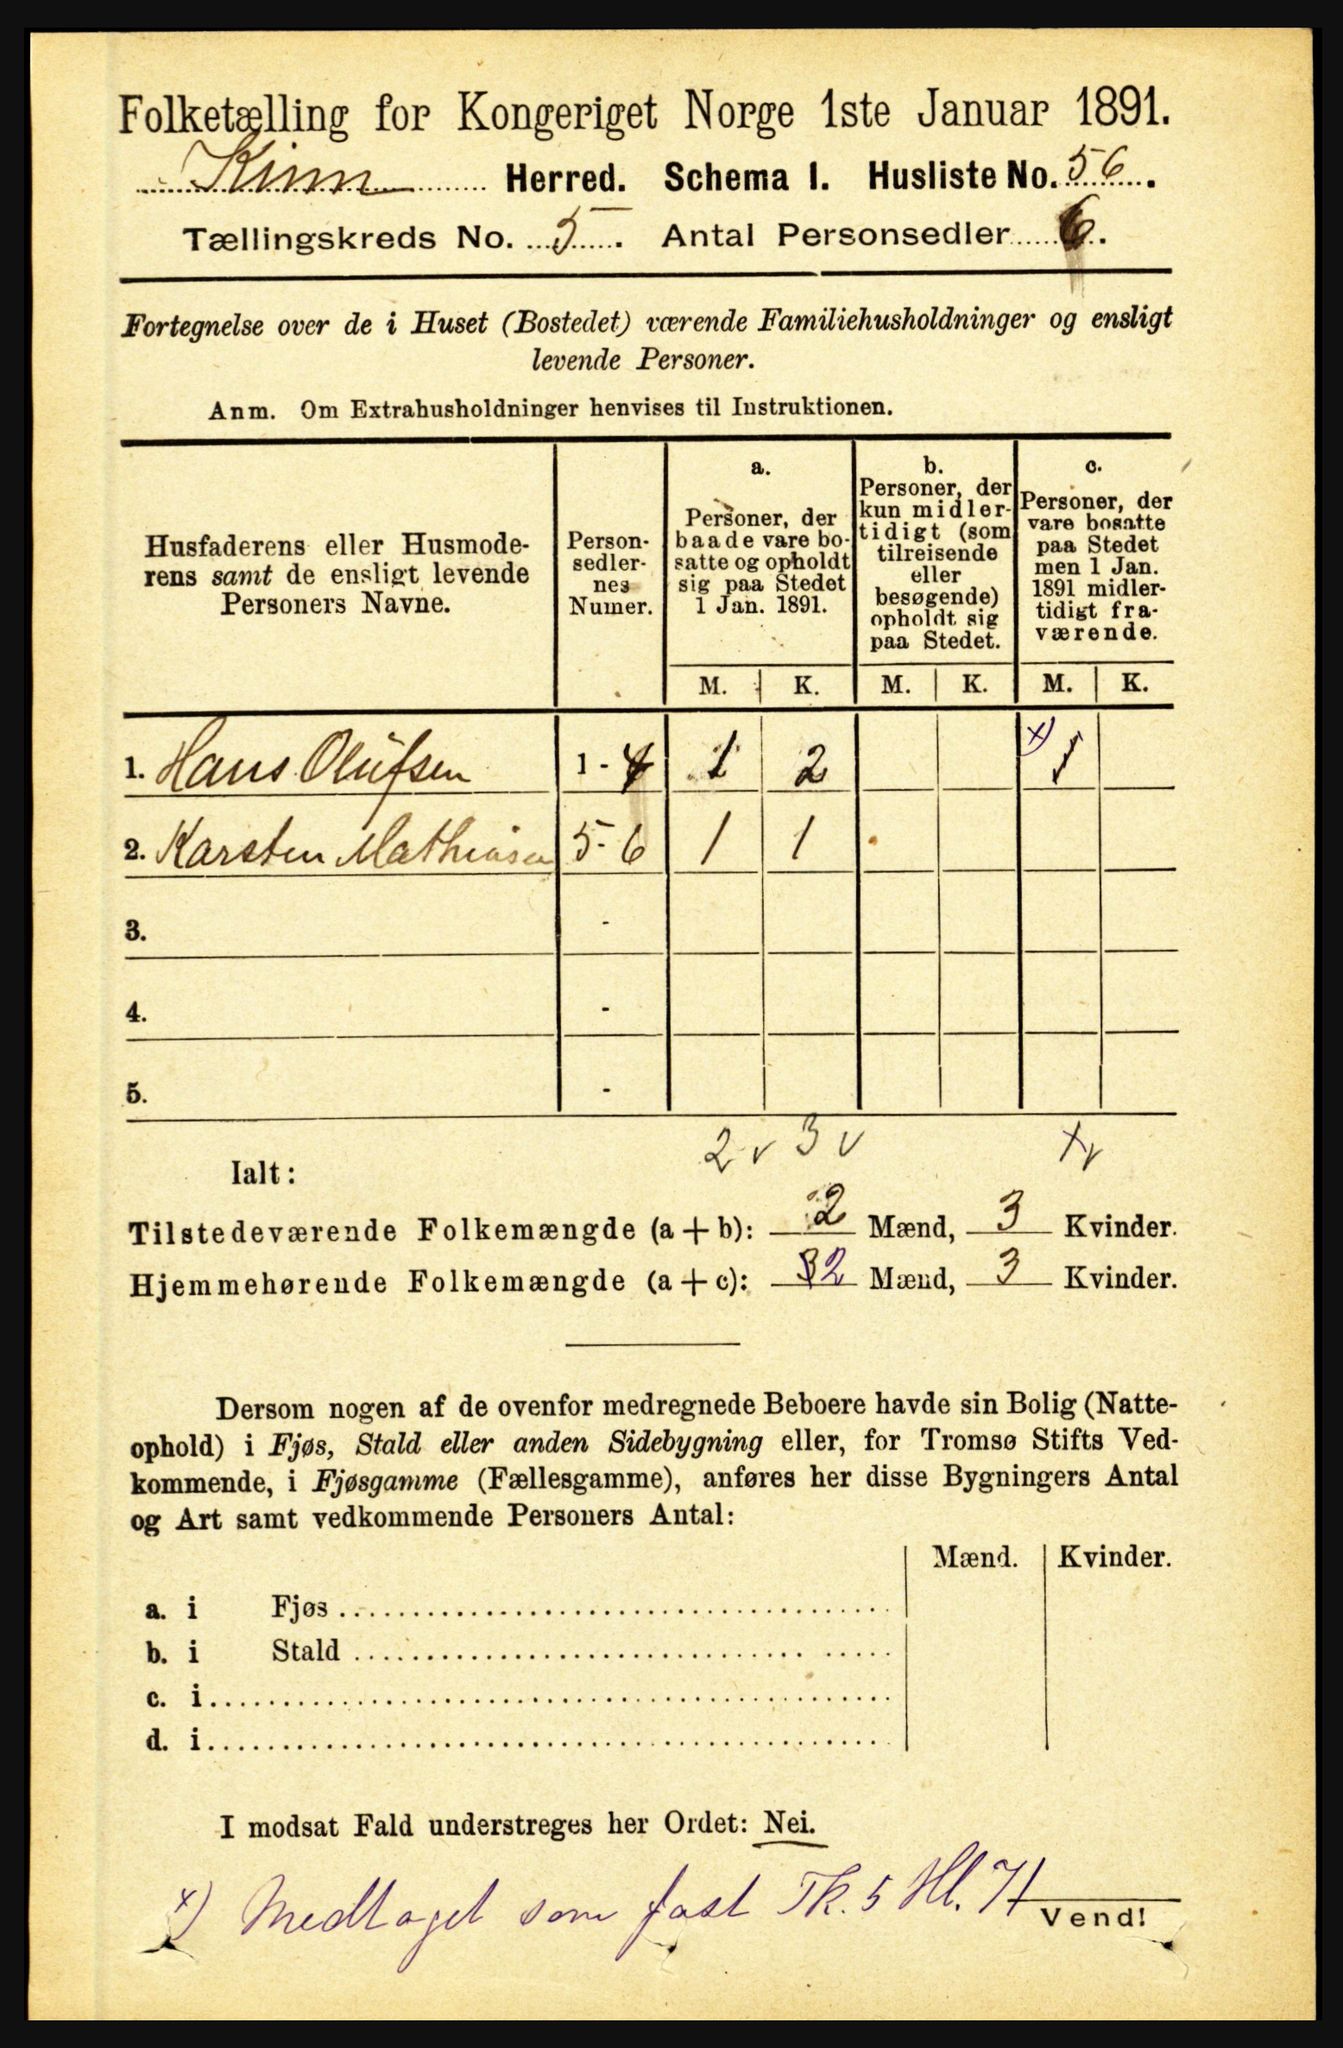 Folketælling for Kongeriget Norge 1ste Januar 1891.
Kinn Herred. Schema I. Husliste No. 56.
Tællingskreds No. 5. Antal Personsedler 6.
Fortegnelse over de i Huset (Bostedet) værende Familiehusholdninger og ensligt
levende Personer.
Anm. Om Extrahusholdninger henvises til Instruktionen.
Husfaderens eller Husmode-
rens samt de ensligt levende
Personers Navne.
Person-
sedler-
nes
Numer.
a.
Personer, der
baade vare bo-
satte og opholdt
sig paa Stedet
1 Jan. 1891.
b.
Personer, der
kun midler-
tidigt (som
tilreisende
eller
besøgende)
opholdt sig
paa Stedet.
c.
Personer, der
vare bosatte
paa Stedet
men 1 Jan.
1891 midler-
tidigt fra-
værende.
M. K. M. K. M. K.
1. Hans Olufsen 1 - 4 1 2 x) 1
2. Karsten Mathiasen 5 - 6 1 1
3. -
4. -
5. -
2 v 3 v v
Ialt:
Tilstedeværende Folkemængde (a + b): 2 Mænd, 3 Kvinder.
Hjemmehørende Folkemængde (a + c): 3 2 Mænd, 3 Kvinder.
Dersom nogen af de ovenfor medregnede Beboere havde sin Bolig (Natte-
ophold) i Fjøs, Stald eller anden Sidebygning eller, for Tromsø Stifts Ved-
kommende, i Fjøsgamme (Fællesgamme), anføres her disse Bygningers Antal
og Art samt vedkommende Personers Antal:
Mænd. Kvinder.
a. i Fjøs
b. i Stald
c. i
d. i
I modsat Fald understreges her Ordet: Nei.
x) Medtaget som fast Tk. 5 Hl. 71
Vend!